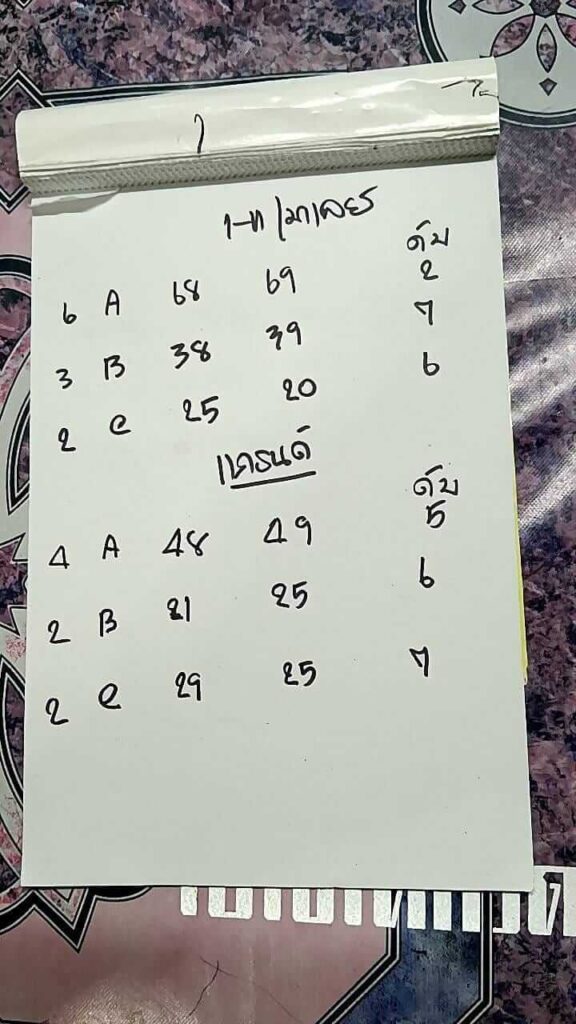 มาเลย์
ดับ
6 A 68 69 2
3 B 38 39 7
2 C 25 20 6
แกรนด์
ดับ
4 A 48 49 5
2 B 21 25 6
2 C 29 25 7